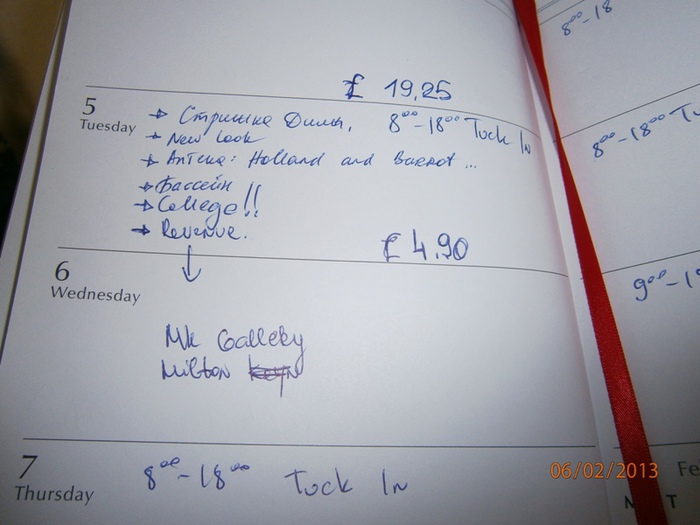 £ 19,25
5
Tuesday
→ Стрижка Дима,
8⁰⁰-18⁰⁰ Tuck In
→ New Look
→ Аптека: Holland and Barrot ...
→ Бассейн
→ College!!
→ Revenue.
£ 4.90
6
Wednesday
Mk Gallery
Milton
7
Thursday
8⁰⁰-18⁰⁰ Tuck In
8⁰⁰-18
8⁰⁰-18⁰⁰
9⁰⁰-1
06/02/2013
Fe
T